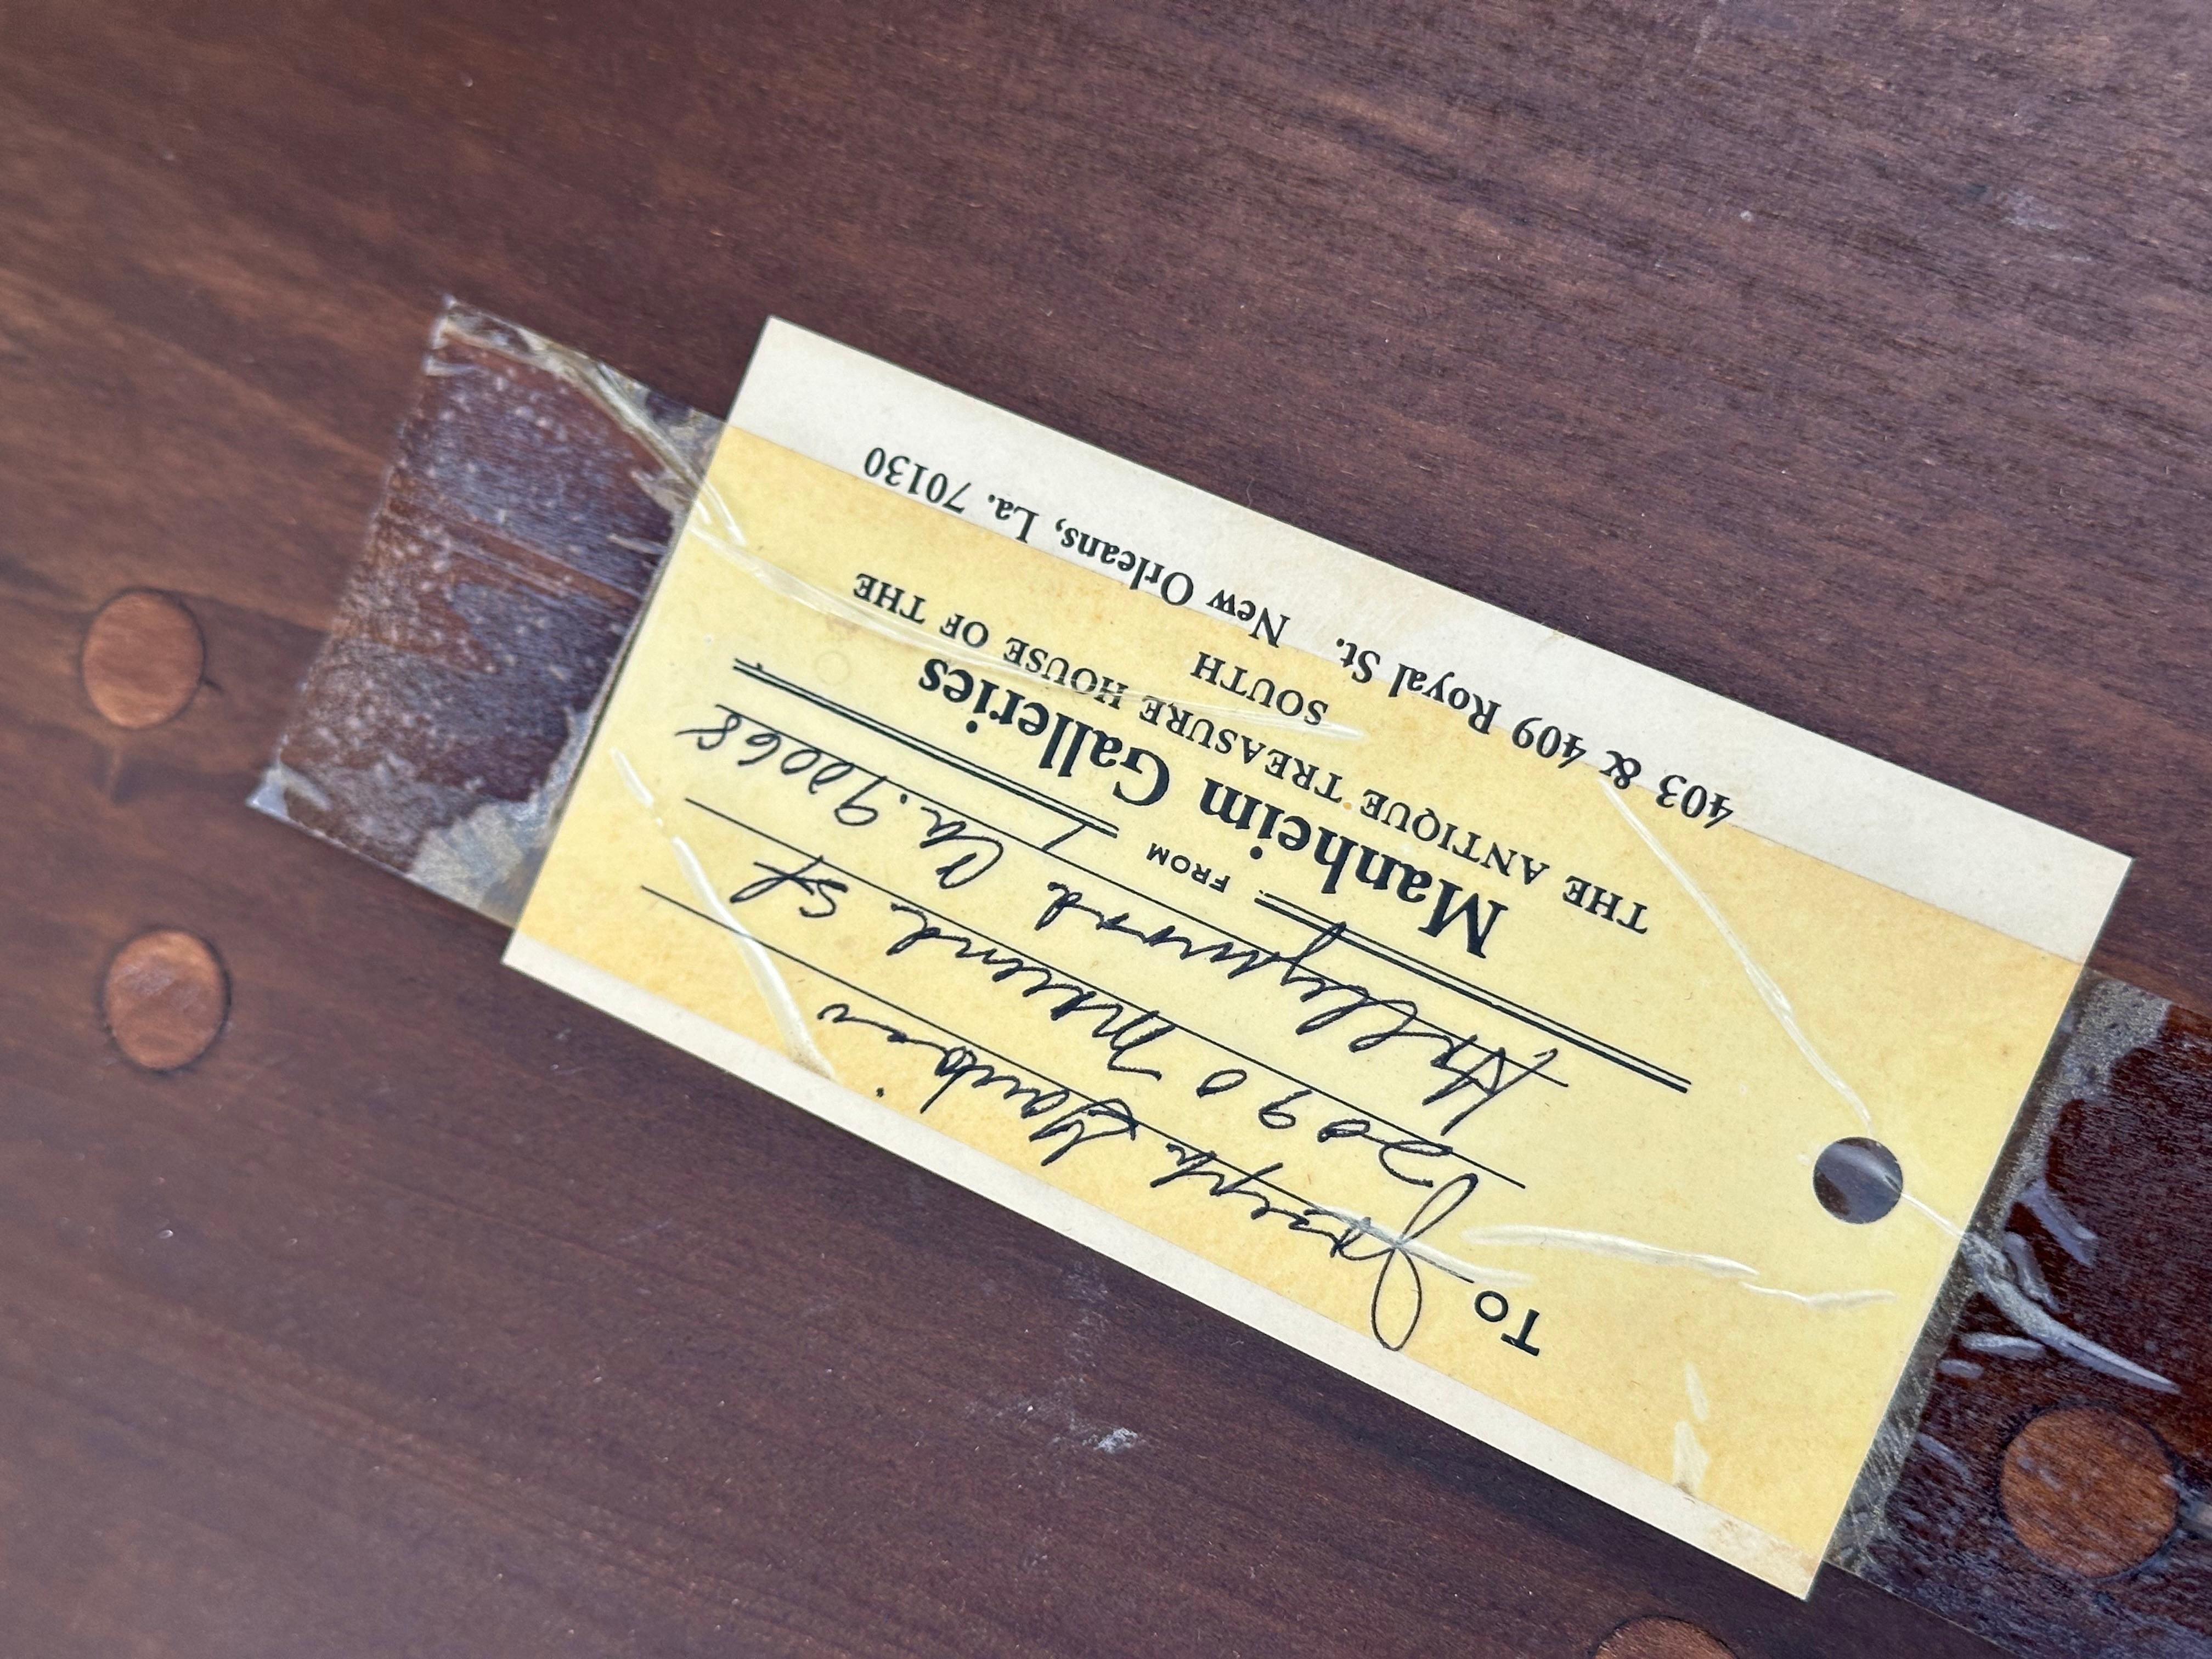 TO Joseph
2090 St
Hollywood Ca. 90068
FROM
Manheim Galleries
THE ANTIQUE TREASURE HOUSE OF THE
SOUTH
403 & 409 Royal St. New Orleans, La. 70130